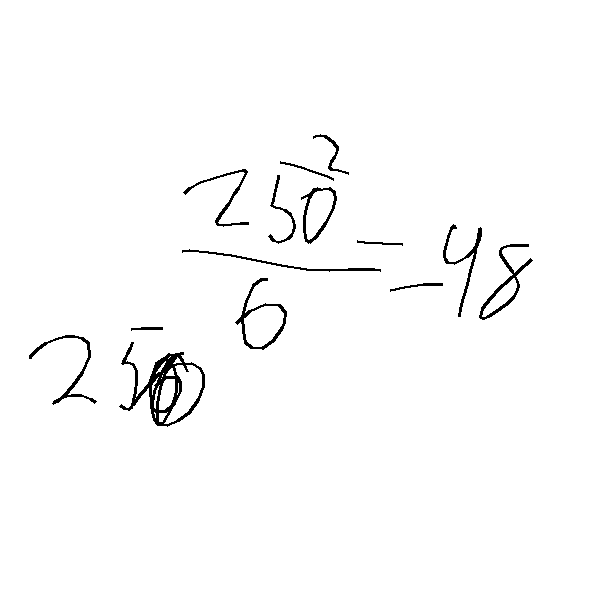 250²
6
= 48
250